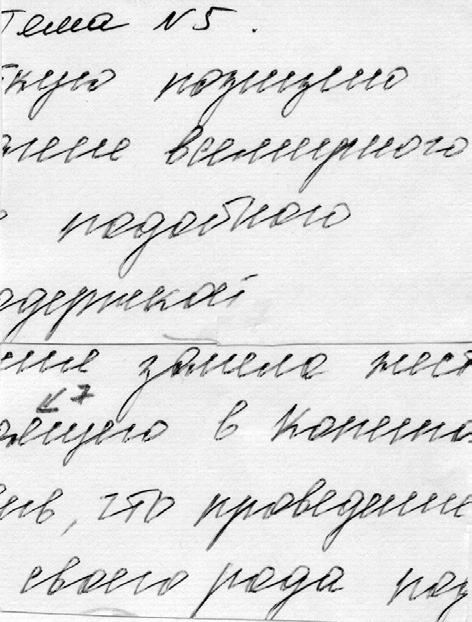 Тема №5.
ткую позицию
ение всемирного
подобного
оддержкой
ение заняла жест
7
ающую в Копенга
ив, что проведение
своего рода поз